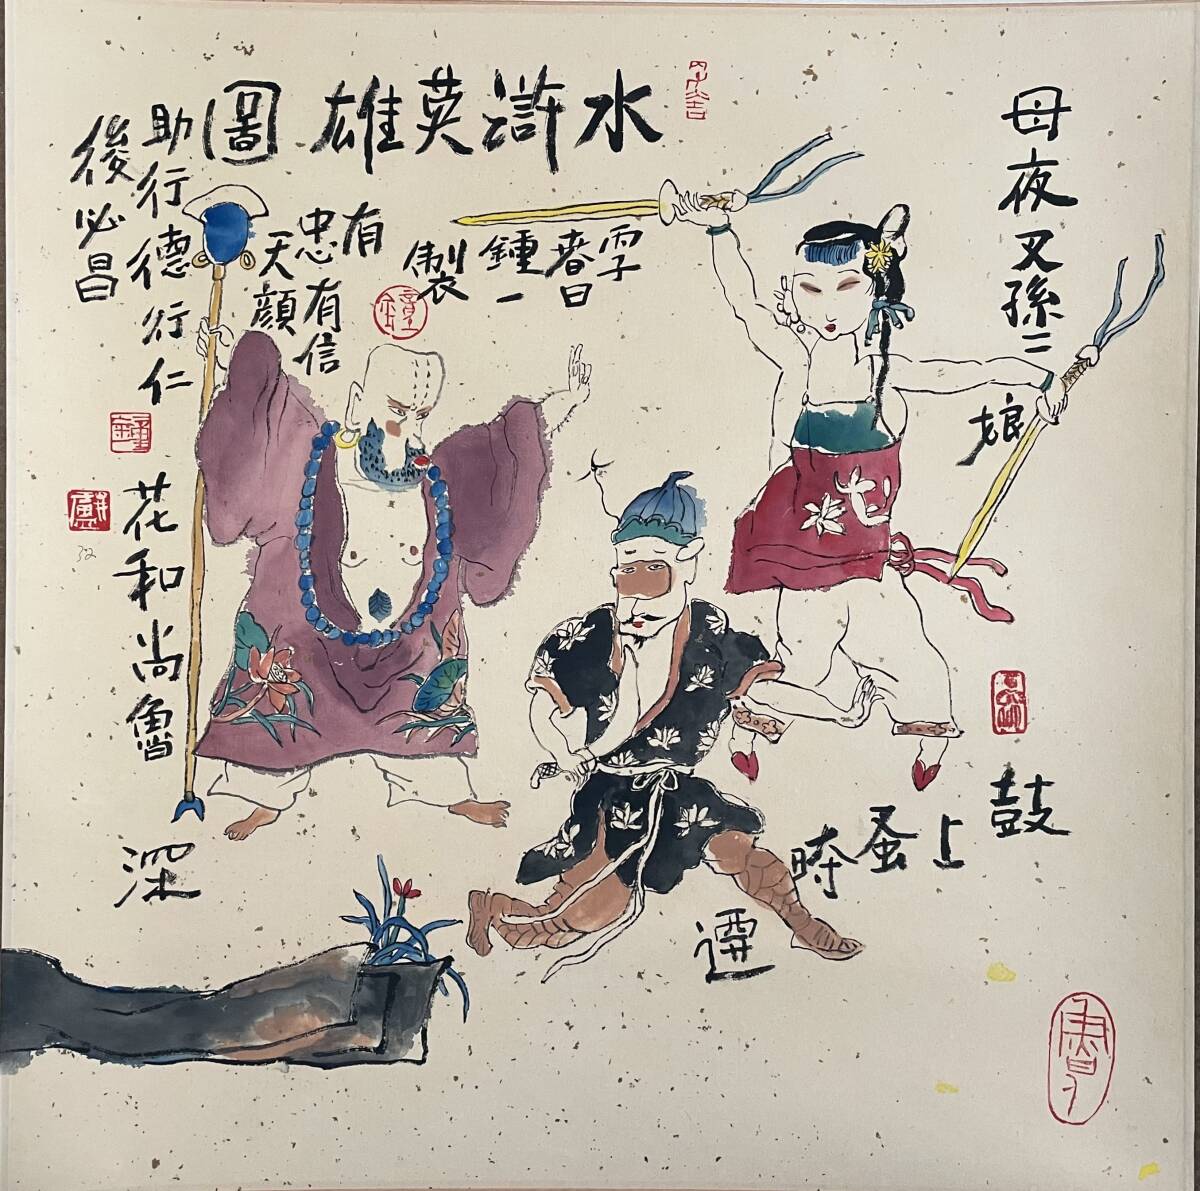 水滸英雄圖
母夜叉孫二
娘
鼓上蚤時
遷
春日
鍾一
製
有
忠有信
天顏
助行德行仁
後必昌
花和尚魯
深
32